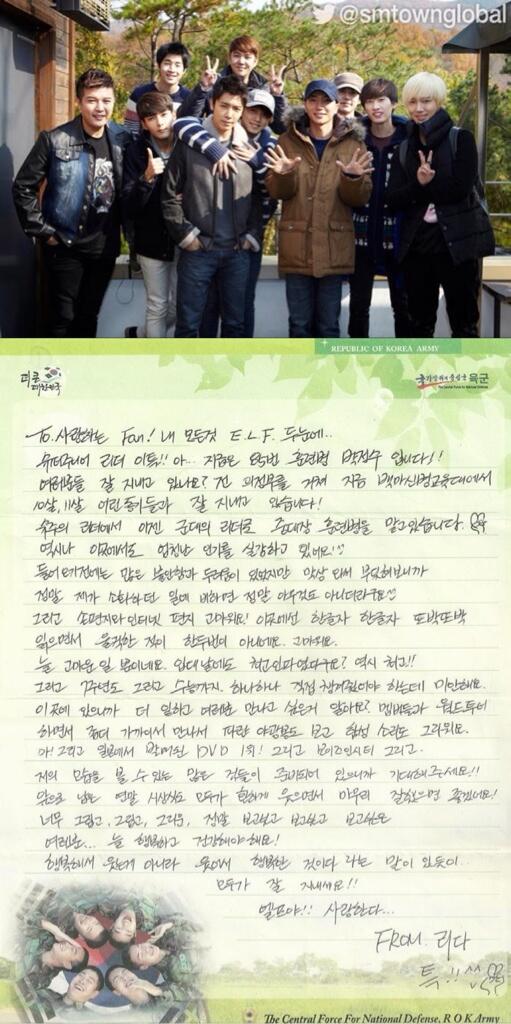 @smtownglobal
REPUBLIC OF KOREA ARMY
대한민국
육군
The Central Force for National Defense
To. 사랑하는 Fan! 내 모든것 E.L.F. 두눈에..
슈퍼주니어 리더 이특!! 아... 지금은 85번 훈련병 박정수 입니다!!
여러분들 잘 지내고 있나요? 전 의정부를 거쳐 지금 백마신병교육대에서
10살, 11살 어린 동기들과 잘 지내고 있습니다!
슈주의 리더에서 이젠 군대의 리더로 중대장 훈련병을 맡고있습니다.
역시나 이곳에서도 엄청난 인기를 실감하고 있네요!
들어오기전에는 많은 불안함과 두려움이 있었지만 막상 와서 부딪혀보니까
정말 제가 소화하던 일에 비하면 정말 아무것도 아니더라구요
그리고 손편지와 인터넷 편지 고마워요! 이곳에선 한글자 한글자 또박또박
읽으면서 울컥한 적이 한두번이 아니에요. 고마워요.
늘 고마운 일 뿐이네요. 입대날에도 최고인파였다구요? 역시 최고!!
그리고 7주년도 그리고 수능까지. 하나하나 직접 챙겨줬어야 하는데 미안해요.
이곳에 있으니까 더 일하고 여러분 만나고 싶은거 알아요? 멤버들과 월드투어
하면서 좀더 가까이서 만나서 파란 야광봉도 보고 함성 소리도 그리워요.
아! 그리고 일본에서 발매된 DVD 1위! 그리고 보이즈인시티 그리고..
저의 모습을 볼 수 있는 많은 것들이 준비되어 있으니까 기대해주세요!!
앞으로 남은 연말 시상식도 모두가 함께 웃으면서 마무리 잘했으면 좋겠네요!
너무 그립고, 그립고, 그리운, 정말 보고싶고 보고싶고 보고싶은
여러분... 늘 행복하고 건강해야해요!
행복해서 웃는게 아니라 웃어서 행복한 것이다 라는 말이 있듯이..
모두가 잘 지내세요!!
엘프야!! 사랑한다...
FROM. 리다
특!!
The Central Force For National Defense, R O K Army